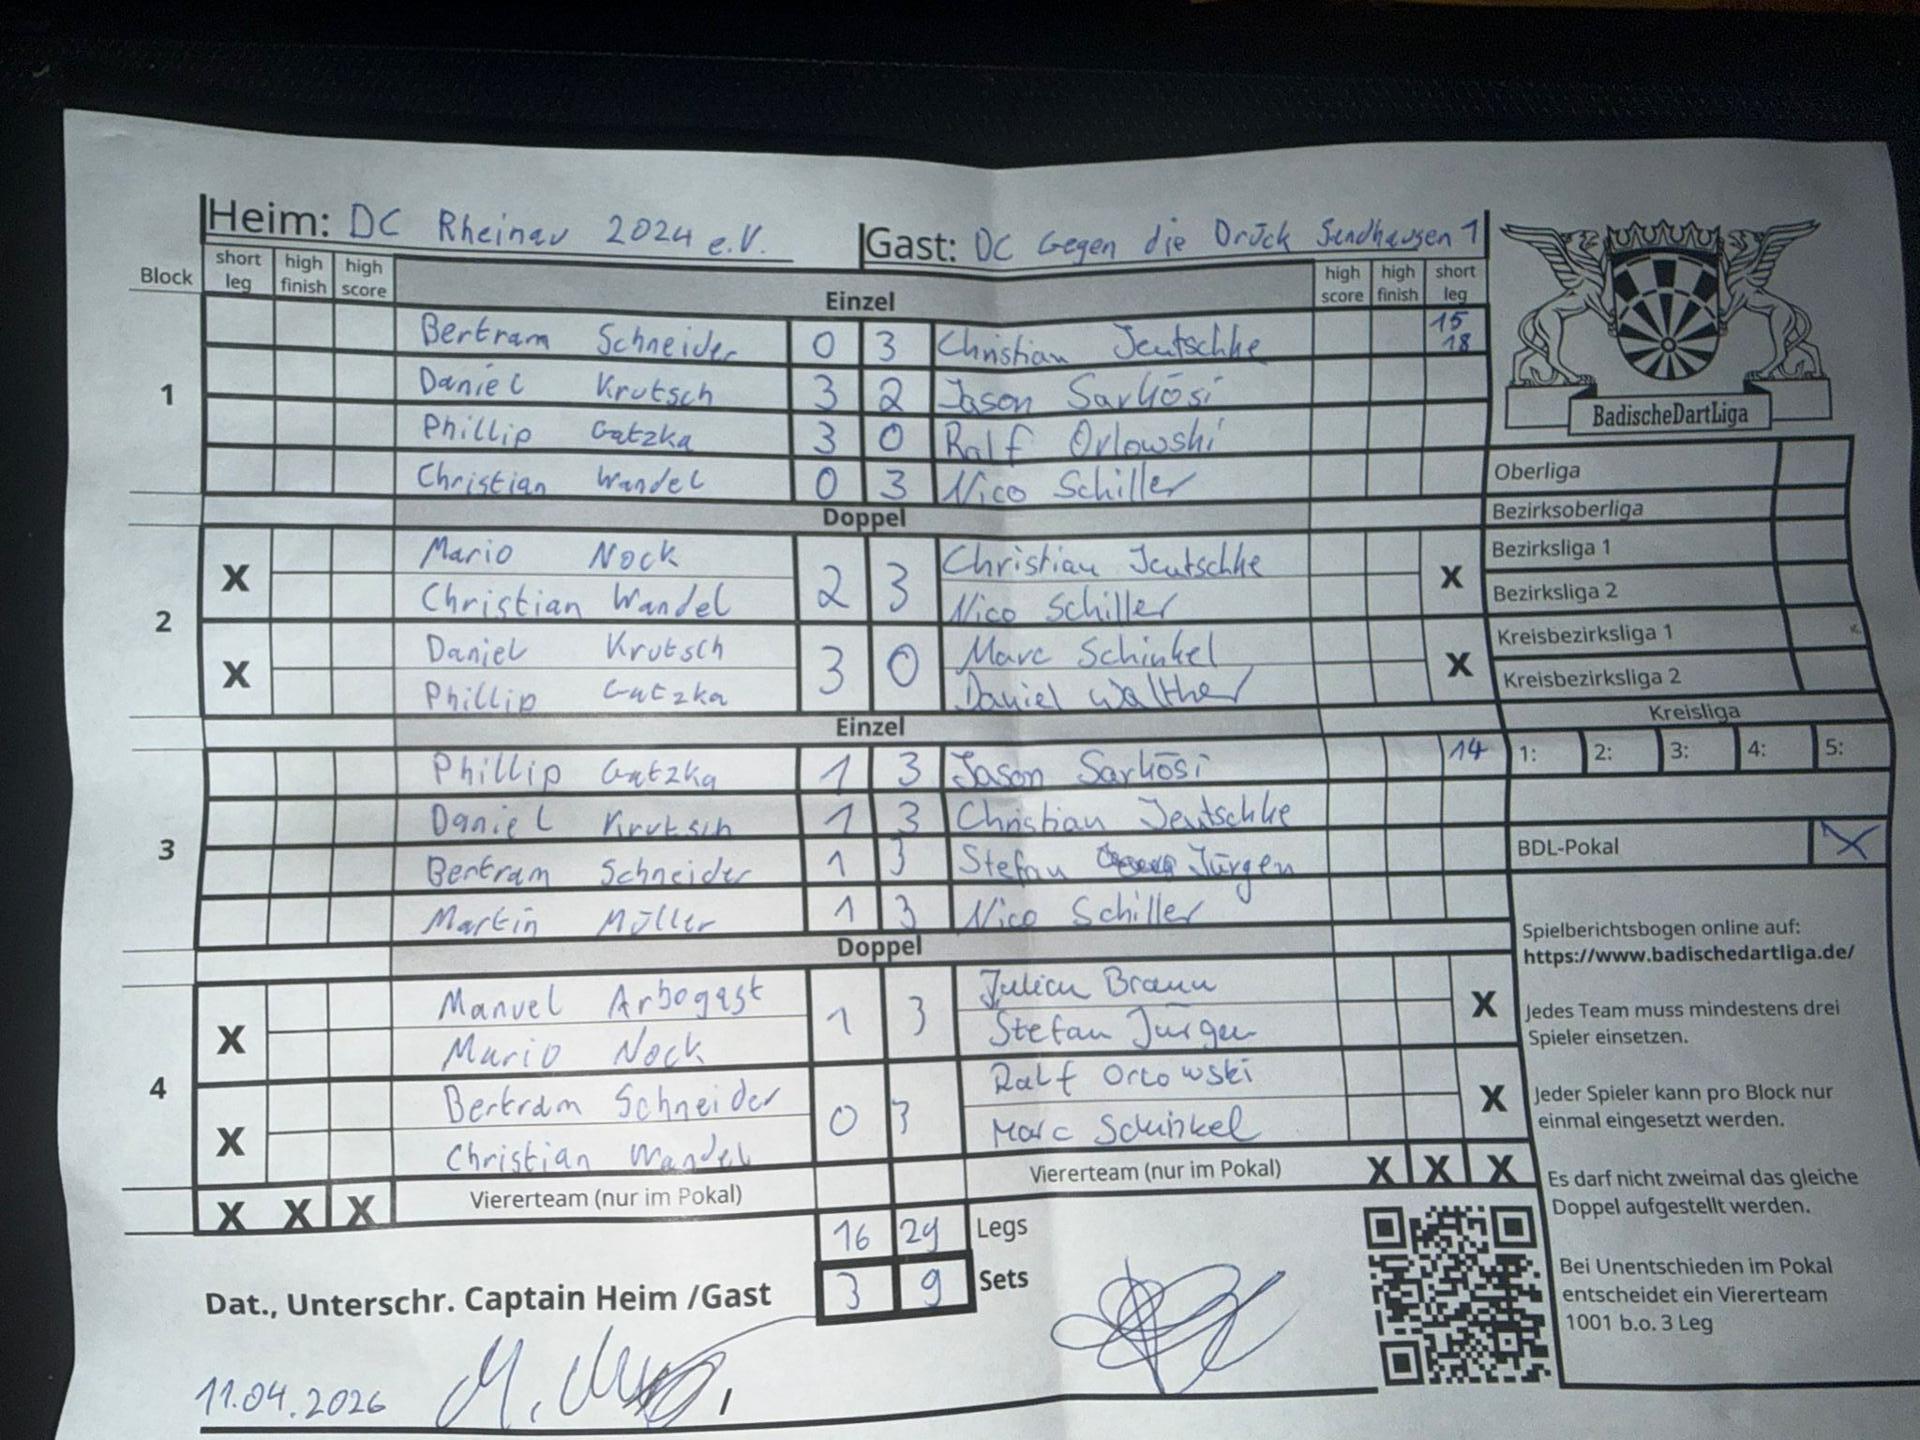 Heim: DC Rheinau 2024 e.V. Gast: DC Gegen die Drück Sandhausen 1
Block short leg high finish high score Einzel high score high finish short leg
1
Bertram Schneider 0 3 Christian Jeutschke 15 18
Daniel Krutsch 3 2 Jason Sarkösi
Phillip Gatzka 3 0 Ralf Orlowski
Christian Wandel 0 3 Nico Schiller
Doppel
2
X Mario Nock 2 3 Christian Jeutschke X
Christian Wandel Nico Schiller
X Daniel Krutsch 3 0 Marc Schinkel X
Phillip Gatzka Daniel Walther
Einzel
3
Phillip Gatzka 1 3 Jason Sarkösi 14
Daniel Krutsch 1 3 Christian Jeutschke
Bertram Schneider 1 3 Stefan Jürgen
Martin Müller 1 3 Nico Schiller
Doppel
4
X Manuel Arbogast 1 3 Julian Braun X
Mario Nock Stefan Jürgen
X Bertram Schneider 0 3 Ralf Orlowski X
Christian Wandel Marc Schinkel
X X X Viererteam (nur im Pokal) Viererteam (nur im Pokal) X X X
16 29 Legs
3 9 Sets
Dat., Unterschr. Captain Heim /Gast
11.04.2026
BadischeDartLiga
Oberliga
Bezirksoberliga
Bezirksliga 1
Bezirksliga 2
Kreisbezirksliga 1
Kreisbezirksliga 2
Kreisliga
1: 2: 3: 4: 5:
BDL-Pokal X
Spielberichtsbogen online auf:
https://www.badischedartliga.de/
Jedes Team muss mindestens drei
Spieler einsetzen.
Jeder Spieler kann pro Block nur
einmal eingesetzt werden.
Es darf nicht zweimal das gleiche
Doppel aufgestellt werden.
Bei Unentschieden im Pokal
entscheidet ein Viererteam
1001 b.o. 3 Leg